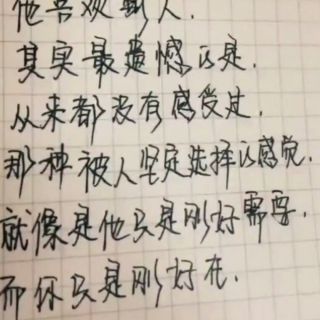 他喜欢别人.
其实最遗憾的是.
从来都没有感受过.
那种被人坚定选择的感觉.
就像是他只是刚好需要.
而你只是刚好在.